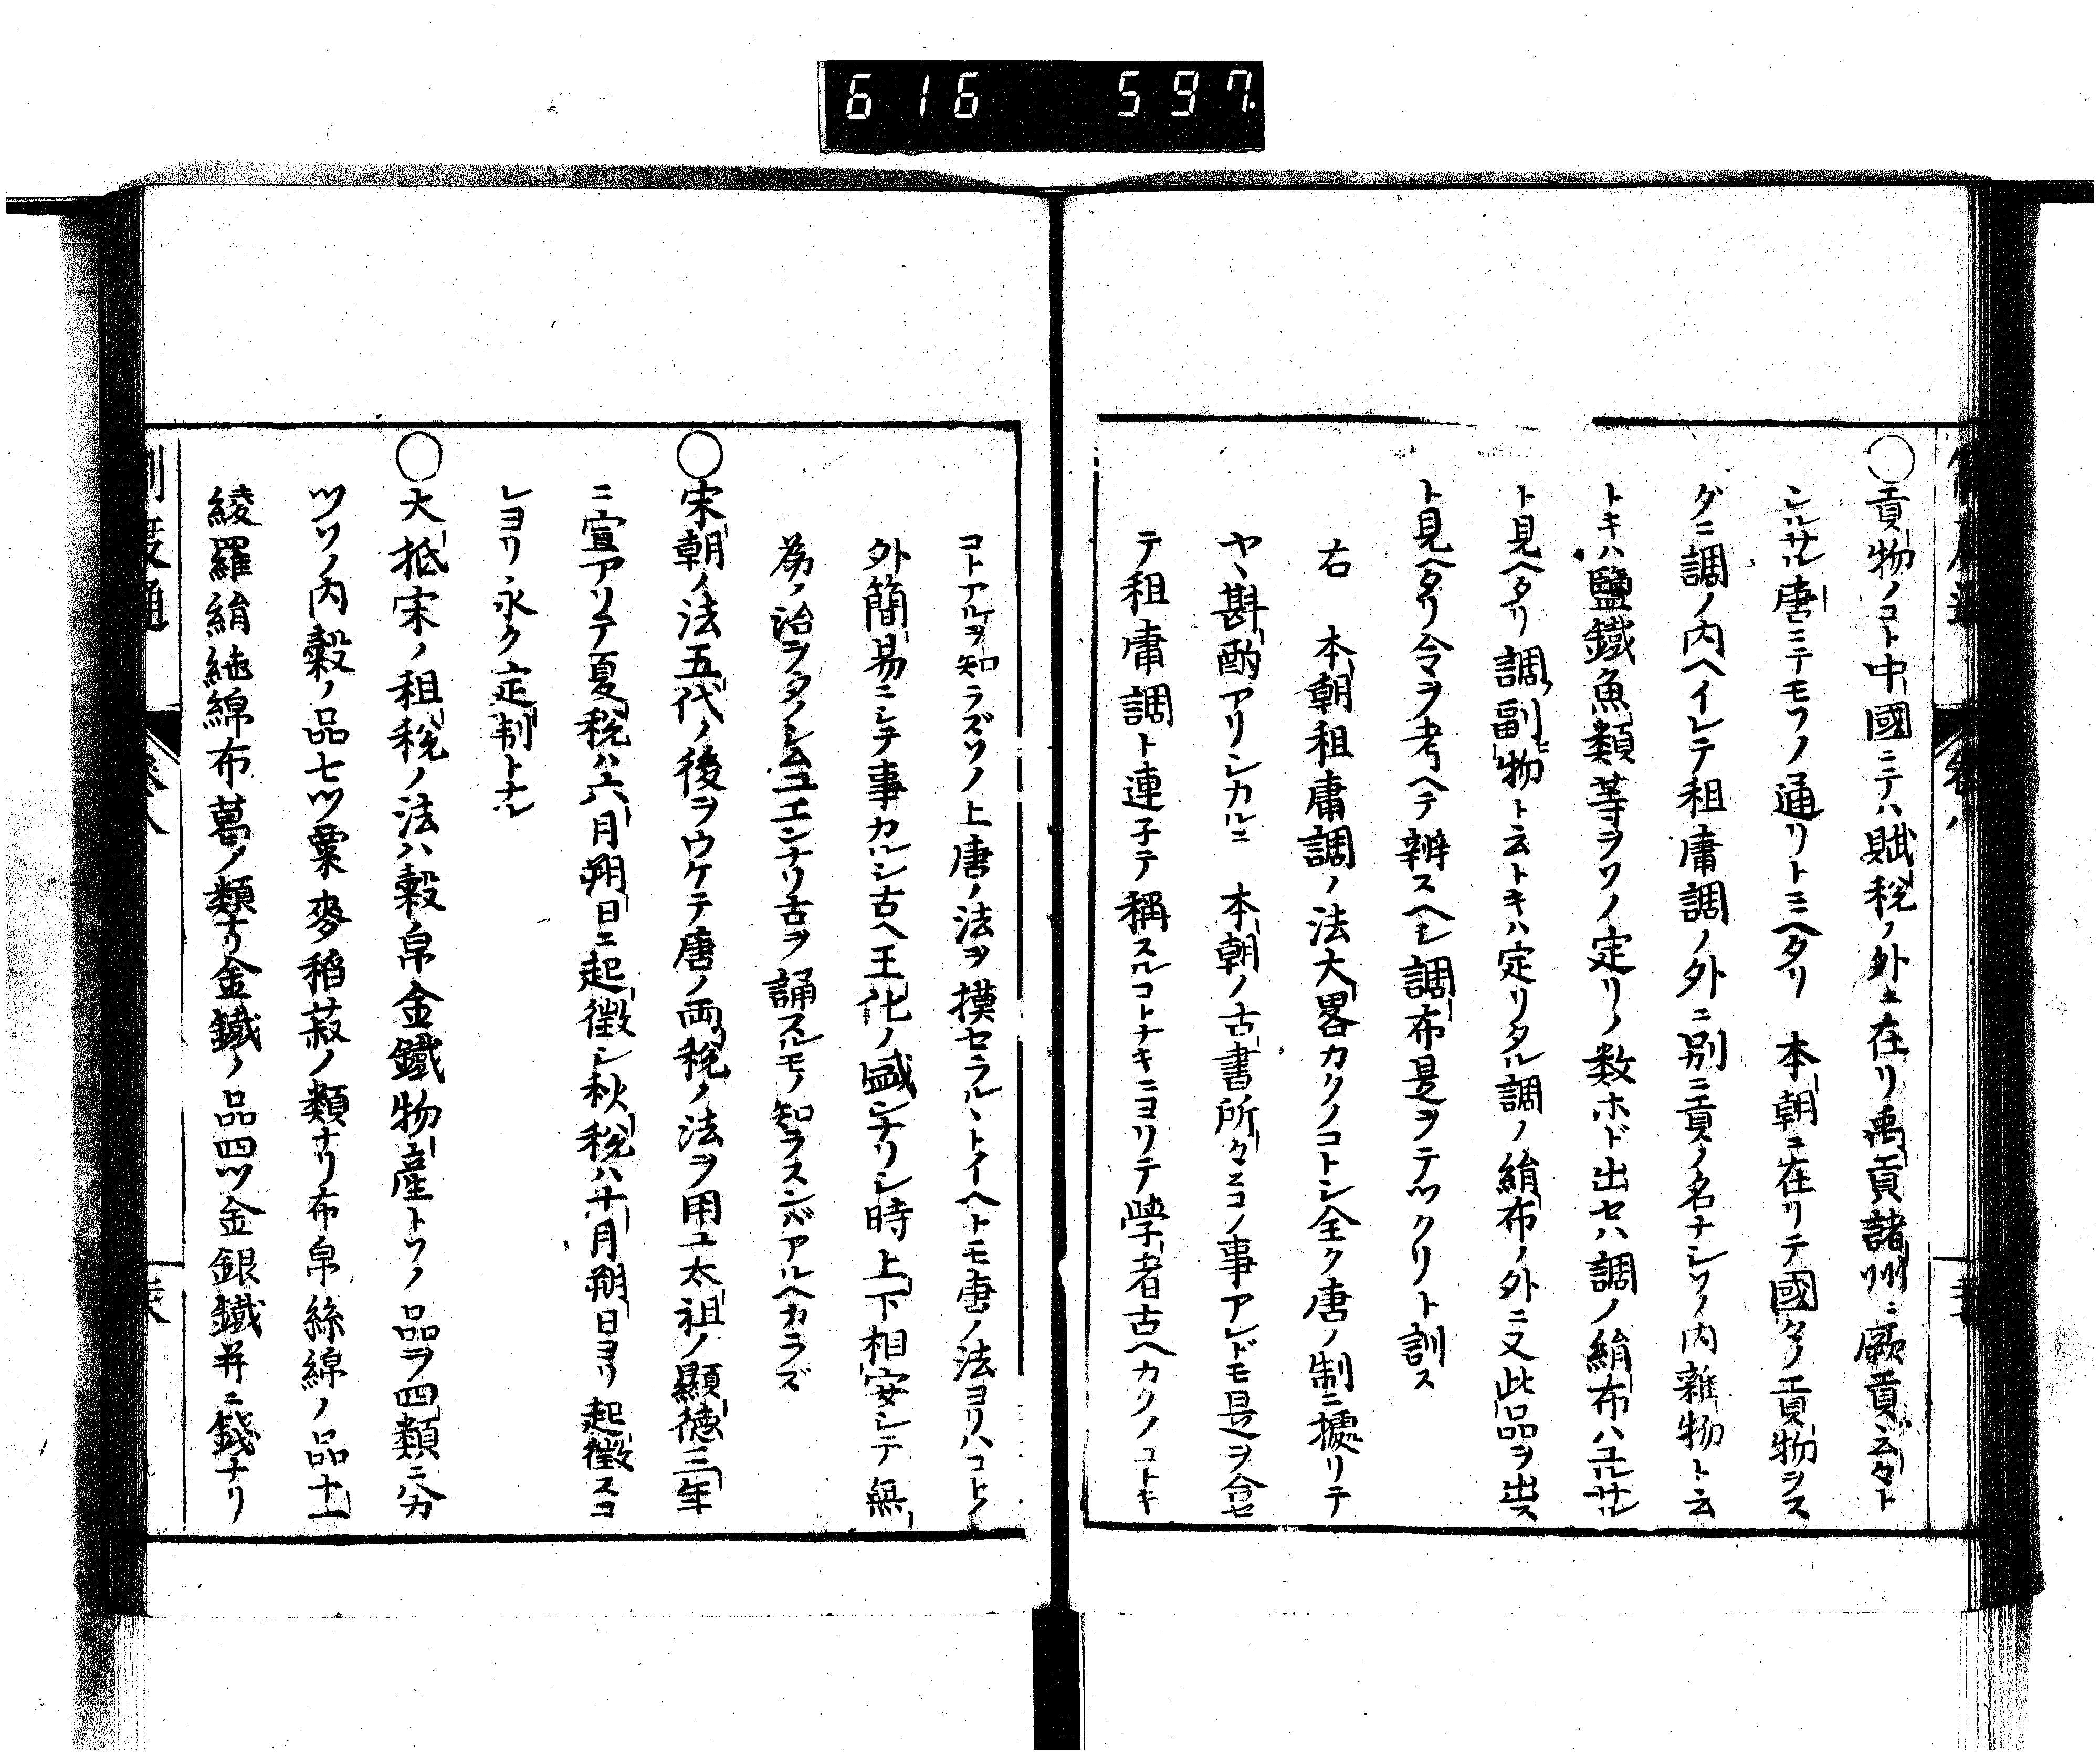 616 597
○貢物ノコト中國ニテハ賦税ノ外ニ在リ禹貢諸州ニ厥貢云々ト
シルサル唐ニテモソノ通リトミヘタリ 本朝ニ在リテ國々ノ貢物ヲス
グニ調ノ内ヘイレテ租庸調ノ外ニ別ニ貢ノ名ナシソノ内雜物ト云
トキハ鹽鐵魚類等ヲソノ定リノ数ホド出セハ調ノ絹布ハユルサル
ト見ヘタリ調ノ副物ト云トキハ定リタル調ノ絹布ノ外ニ又此品ヲ出ス
ト見ヘタリ令ヲ考ヘテ辨スヘシ調布是ヲテツクリト訓ス
右 本朝租庸調ノ法大畧カクノコトシ全ク唐ノ制ニ據リテ
ヤヽ斟酌アリシカルニ 本朝ノ古書所々ニコノ事アレドモ是ヲ合セ
テ租庸調ト連子テ稱スルコトナキニヨリテ學者古ヘカクノコトキ
コトアルヲ知ラズソノ上唐ノ法ヲ摸セラルヽトイヘトモ唐ノ法ヨリハコトノ
外簡易ニシテ事カルシ古ヘ王化ノ盛ンナリシ時上下相安シテ無
為ノ治ヲタノシムユエンナリ古ヲ誦スルモノ知ラスンバアルヘカラズ
○宋朝ノ法五代ノ後ヲウケテ唐ノ両税ノ法ヲ用ユ太祖ノ顯徳三年
ニ宣アリテ夏税ハ六月朔日ニ起徴シ秋税ハ十月朔日ヨリ起徴スコ
レヨリ永ク定制トナル
○大抵宋ノ租税ノ法ハ穀帛金鐵物産トソノ品ヲ四類ニ分
ツソノ内穀ノ品七ツ粟麥稻菽ノ類ナリ布帛絲綿ノ品十一
綾羅絹絁綿布葛ノ類ナリ金鐵ノ品四ツ金銀鐵并ニ錢ナリ